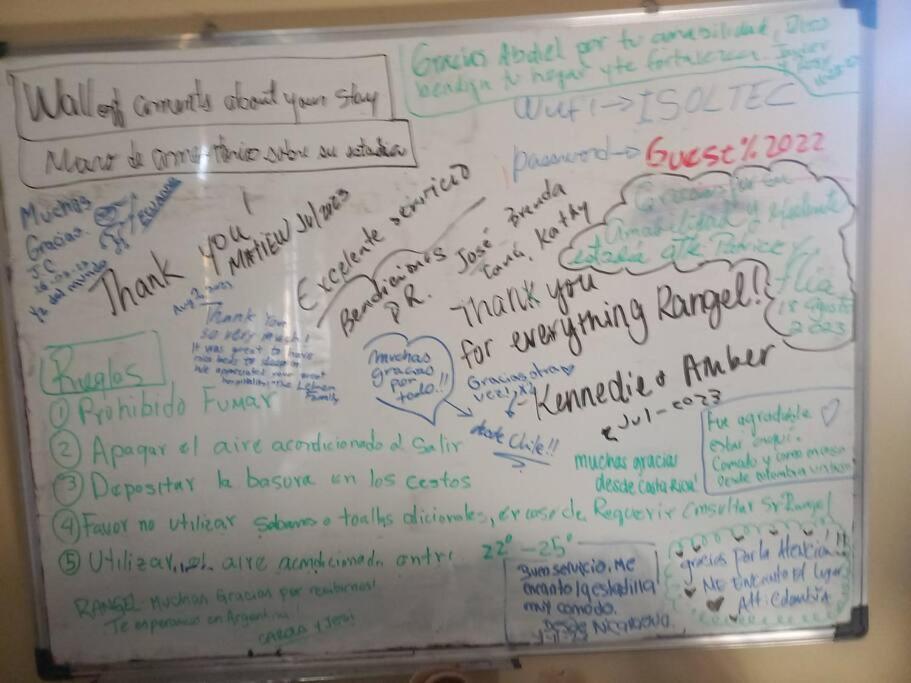 Wall off coments about your stay
Muro de comentarios sobre su estadia
Gracias Abdiel por tu amabilidad, Dios
bendiga tu hogar y te fortalezca
Wifi → ISOLTEC
password → Guest%2022
Muchas
Gracias.
J.C
ya del mundo
ECUADOR
Thank you
MATIEW Jul 2023
Excelente servicio
Bendiciones
P.R.
José Brenda
Tania, Kathy
Gracias por su
Amabilidad y
estadia
flia
18 agosto
2023
Thank you
for everything Rangel!
Kennedie & Amber
Jul-2023
Aug 2, 2023
Thank You
so very much!
It was great to have
nice beds to sleep in
We appreciated your great
hospitality, the
Family
muchas
gracias
por
todo!!
Gracias otra
vez!,
desde Chile!!
Reglas
① Prohibido Fumar
② Apagar el aire acondicionado al Salir
③ Depositar la basura en los cestos
④ Favor no utilizar sabanas o toallas adicionales, en caso de Requerir Consultar Sr Rangel
⑤ Utilizar el aire acondicionado entre 22° - 25°
muchas gracias
desde Costa Rica!
Fue agradable
estar aqui.
Comodo y como en casa
Desde Colombia
RANGEL Muchas Gracias por recibirnos!
Te esperamos en Argentina
Buen servicio. Me
encanto la estadilla
muy comodo.
Desde Nicaragua.
gracias por la Atencion!!
Me Encanto El lugar
Att: Colombia